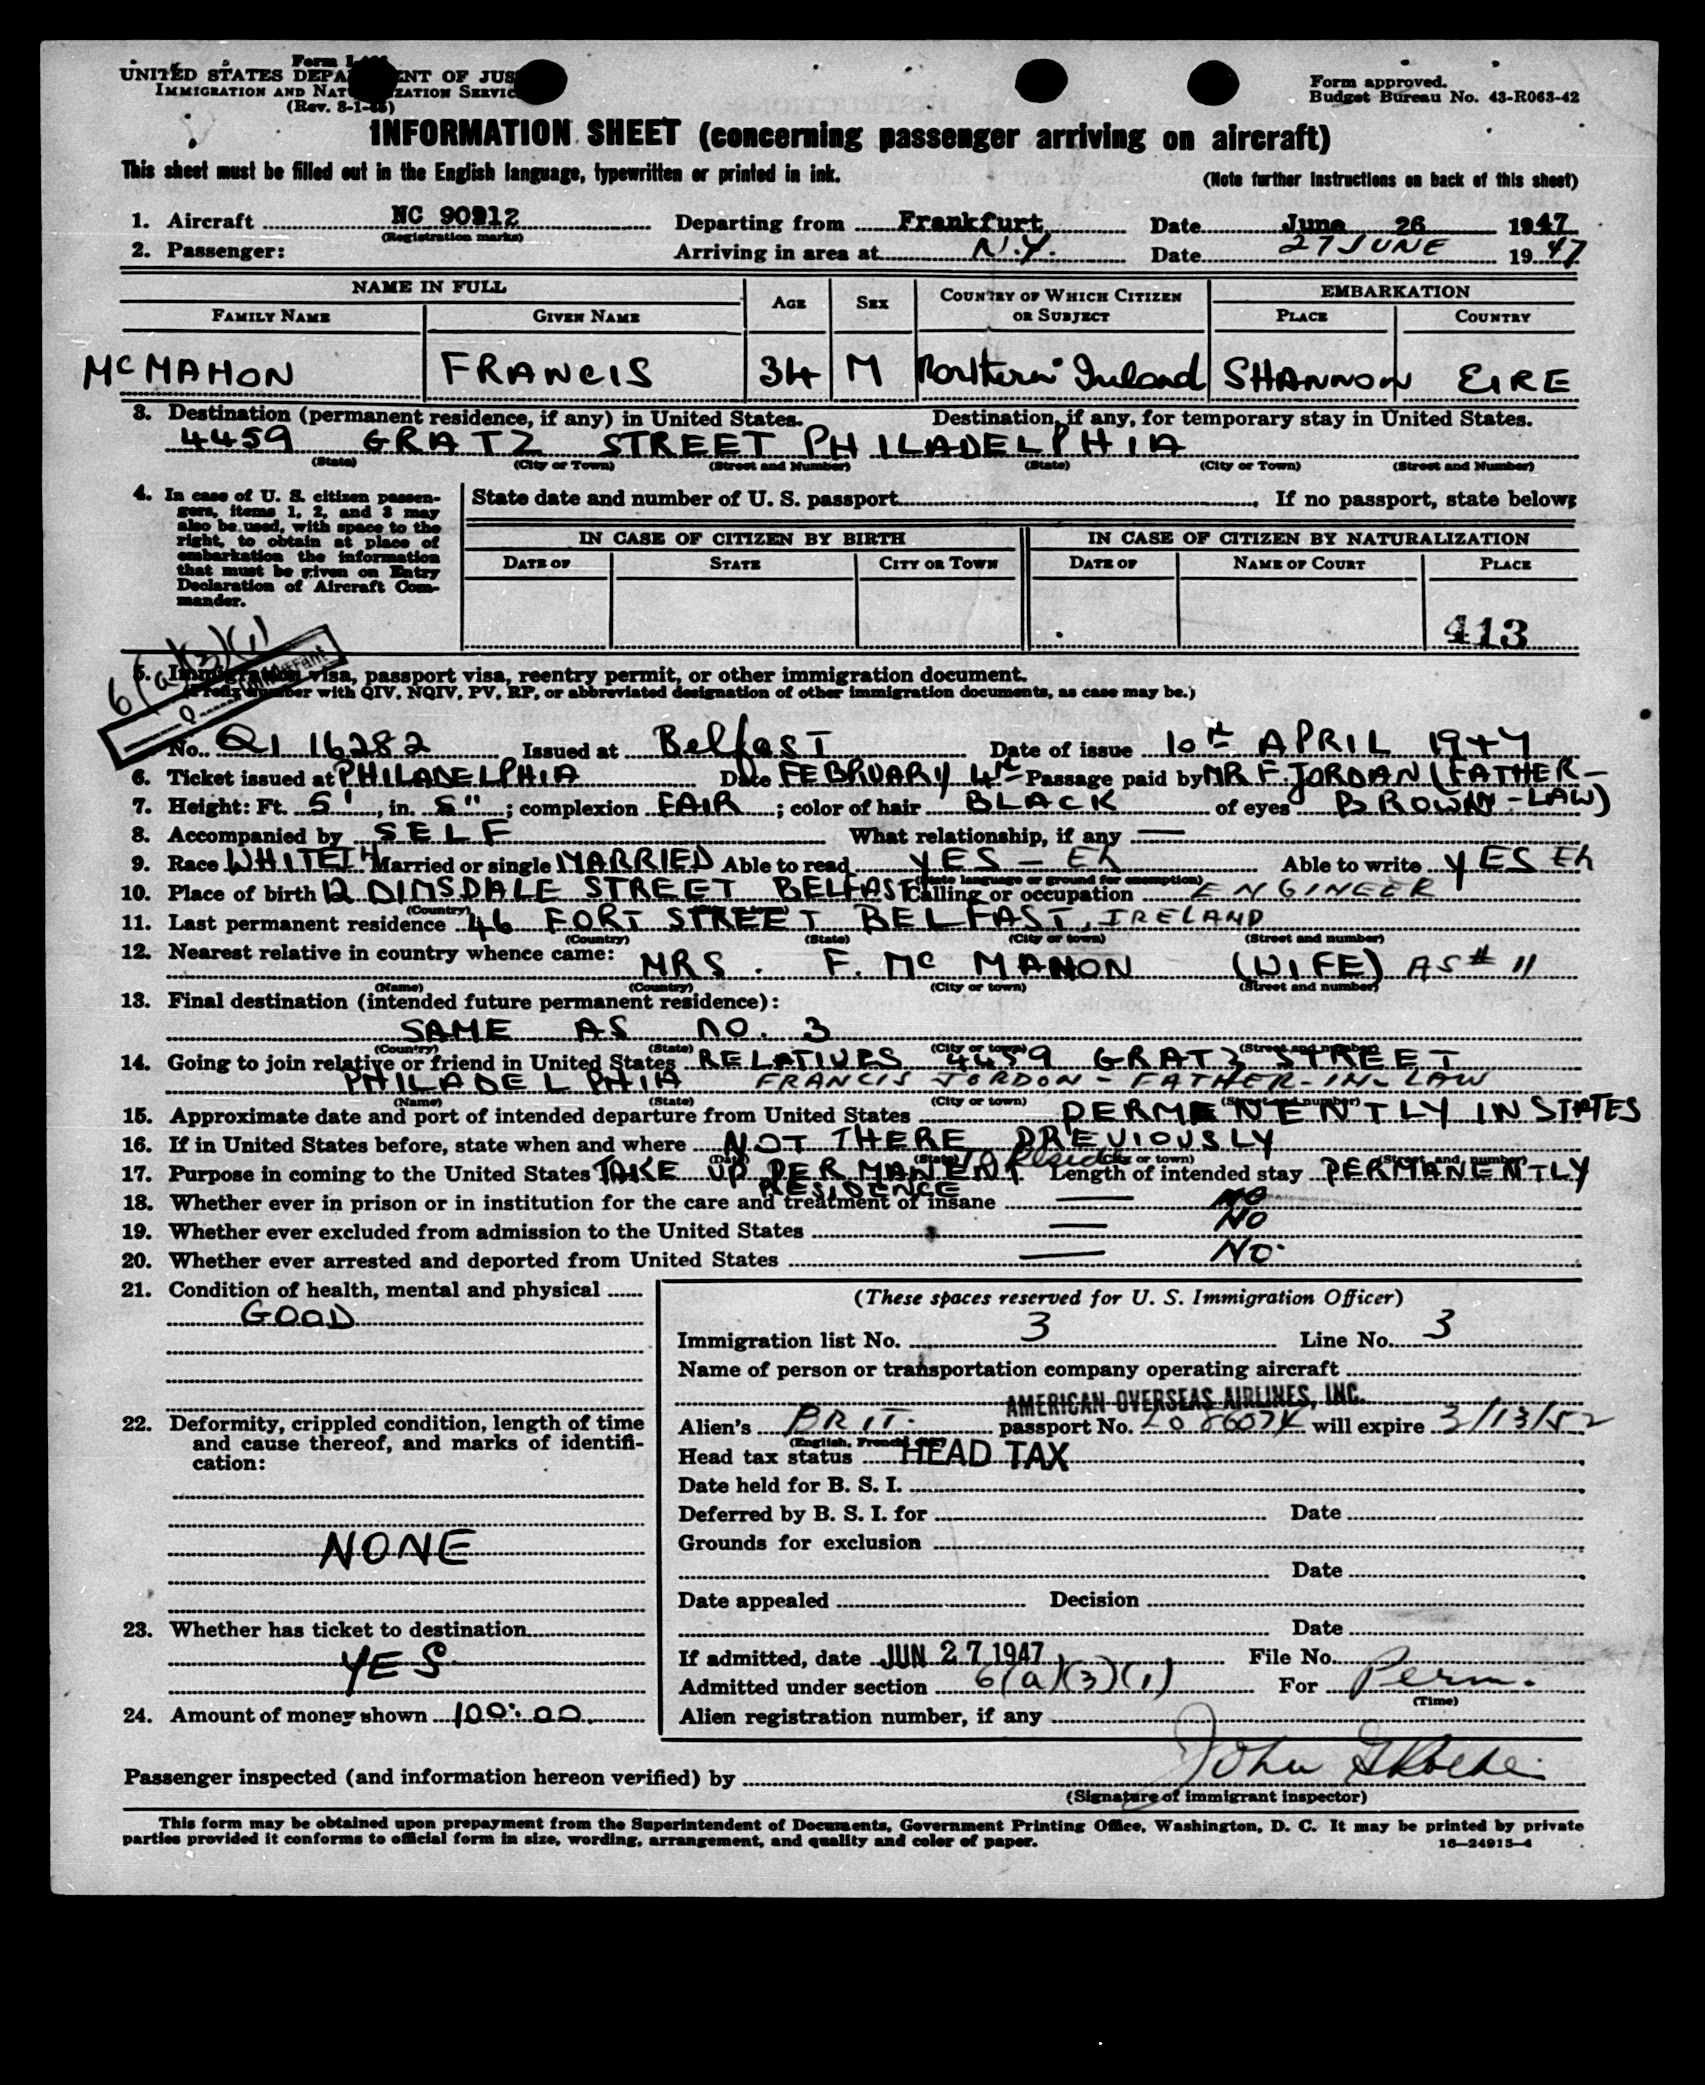 Form I-
UNITED STATES DEPA ENT OF JUS
IMMIGRATION AND NAT ZATION SERVIC
(Rev. 8-1-45)
Form approved.
Budget Bureau No. 43-R063-42
INFORMATION SHEET (concerning passenger arriving on aircraft)
This sheet must be filled out in the English language, typewritten or printed in ink.
(Note further instructions on back of this sheet)
1. Aircraft NC 90912 Departing from Frankfurt Date June 26 1947
(Registration marks)
2. Passenger: Arriving in area at N.Y. Date 27 JUNE 1947
NAME IN FULL AGE SEX COUNTRY OF WHICH CITIZEN OR SUBJECT EMBARKATION
FAMILY NAME GIVEN NAME PLACE COUNTRY
McMAHON FRANCIS 34 M Northern Ireland SHANNON EIRE
3. Destination (permanent residence, if any) in United States. Destination, if any, for temporary stay in United States.
4459 GRATZ STREET PHILADELPHIA
(State) (City or Town) (Street and Number) (State) (City or Town) (Street and Number)
4. In case of U. S. citizen passen-
gers, items 1, 2, and 3 may
also be used, with space to the
right, to obtain at place of
embarkation the information
that must be given on Entry
Declaration of Aircraft Com-
mander.
State date and number of U. S. passport , If no passport, state below:
IN CASE OF CITIZEN BY BIRTH IN CASE OF CITIZEN BY NATURALIZATION
DATE OF STATE CITY OR TOWN DATE OF NAME OF COURT PLACE
413
6(a)(3)(1)
5. Immigration visa, passport visa, reentry permit, or other immigration document.
(Prefix number with QIV, NQIV, PV, RP, or abbreviated designation of other immigration documents, as case may be.)
Q
No. QI 16282 Issued at Belfast Date of issue 10th APRIL 1947
6. Ticket issued at PHILADELPHIA Date FEBRUARY 4th Passage paid by MR F. JORDAN (FATHER-
IN-LAW)
7. Height: Ft. 5', in. 5"; complexion FAIR; color of hair BLACK of eyes BROWN
8. Accompanied by SELF What relationship, if any —
9. Race WHITE Married or single MARRIED Able to read YES - Eh Able to write YES Eh
(State language or ground for exemption)
10. Place of birth 12 DIMSDALE STREET BELFAST Calling or occupation ENGINEER
(Country)
11. Last permanent residence 46 FORT STREET BELFAST, IRELAND
(Country) (State) (City or town) (Street and number)
12. Nearest relative in country whence came: MRS. F. McMAHON (WIFE) AS # 11
(Name) (Country) (City or town) (Street and number)
13. Final destination (intended future permanent residence):
SAME AS NO. 3
(Country) (State) (City or town) (Street and number)
14. Going to join relative or friend in United States RELATIVES 4459 GRATZ STREET
PHILADELPHIA FRANCIS JORDON - FATHER-IN-LAW
(Name) (State) (City or town) (Street and number)
15. Approximate date and port of intended departure from United States PERMENENTLY IN STATES
16. If in United States before, state when and where NOT THERE PREVIOUSLY
(Date) (State) (City or town) (Street and number)
To Reside
17. Purpose in coming to the United States TAKE UP PERMANENT RESIDENCE Length of intended stay PERMANENTLY
18. Whether ever in prison or in institution for the care and treatment of insane — NO
19. Whether ever excluded from admission to the United States — NO
20. Whether ever arrested and deported from United States — NO.
21. Condition of health, mental and physical
GOOD
22. Deformity, crippled condition, length of time
and cause thereof, and marks of identifi-
cation:
NONE
23. Whether has ticket to destination
YES
24. Amount of money shown 100:00
(These spaces reserved for U. S. Immigration Officer)
Immigration list No. 3 Line No. 3
Name of person or transportation company operating aircraft
AMERICAN OVERSEAS AIRLINES, INC.
Alien's BRIT. passport No. will expire 3/13/52
(English, French, etc.)
Head tax status HEAD TAX
Date held for B. S. I.
Deferred by B. S. I. for Date
Grounds for exclusion
Date
Date appealed Decision
Date
If admitted, date JUN 27 1947 File No.
Admitted under section 6(a)(3)(1) For Perm.
(Time)
Alien registration number, if any
Passenger inspected (and information hereon verified) by John
(Signature of immigrant inspector)
This form may be obtained upon prepayment from the Superintendent of Documents, Government Printing Office, Washington, D. C. It may be printed by private
parties provided it conforms to official form in size, wording, arrangement, and quality and color of paper. 16—24915-4